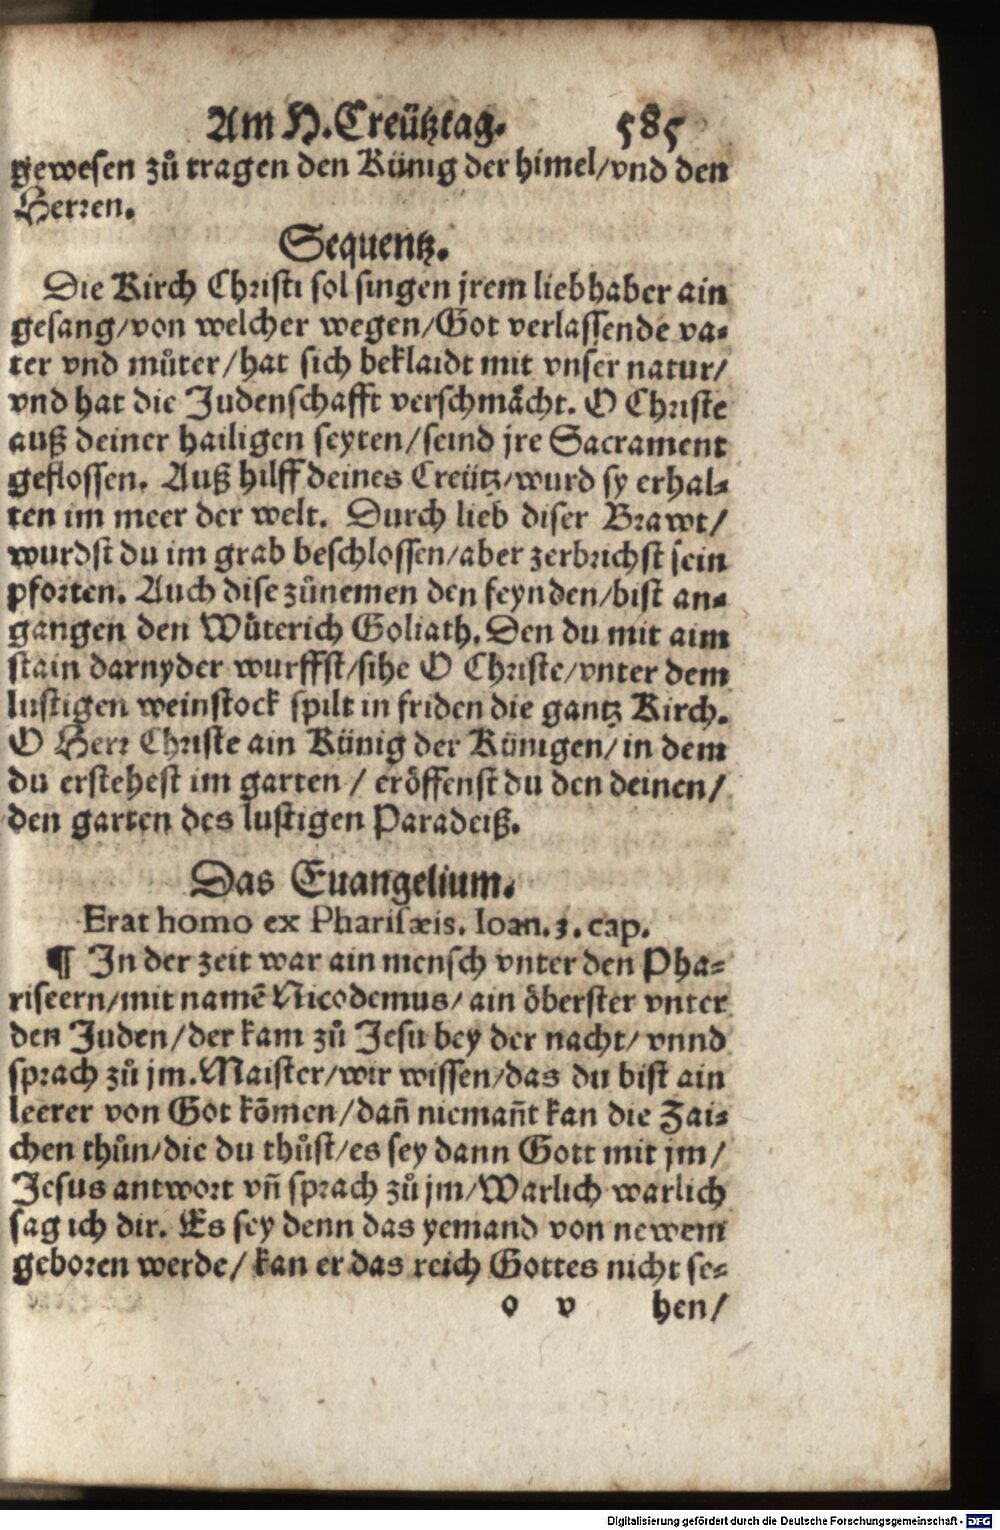 Am H. Creütztag. 585
gewesen zů tragen den Künig der himel/vnd den
Herren.
Sequentz.
Die Kirch Christi sol singen jrem liebhaber ain
gesang/von welcher wegen/Got verlassende va-
ter vnd můter/hat sich beklaidt mit vnser natur/
vnd hat die Judenschafft verschmächt. O Christe
auß deiner hailigen seyten/seind jre Sacrament
geflossen. Auß hilff deines Creütz/wurd sy erhal-
ten im meer der welt. Durch lieb diser Brawt/
wurdst du im grab beschlossen/aber zerbrichst sein
pforten. Auch dise zůnemen den feynden/bist an-
gangen den Wůterich Goliath. Den du mit aim
stain darnyder wurffst/sihe O Christe/vnter dem
lustigen weinstock spilt in friden die gantz Kirch.
O Herr Christe ain Künig der Künigen/in dem
du erstehest im garten/ eröffenst du den deinen/
den garten des lustigen Paradeiß.
Das Euangelium.
Erat homo ex Pharisæis. Ioan. 3. cap.
¶ In der zeit war ain mensch vnter den Pha-
riseern/mit namē Nicodemus/ ain öberster vnter
den Juden/der kam zů Jesu bey der nacht/ vnnd
sprach zů jm. Maister/wir wissen/das du bist ain
leerer von Got kōmen/dañ niemañt kan die Zai-
chen thůn/die du thůst/es sey dann Gott mit jm/
Jesus antwort vñ sprach zů jm/Warlich warlich
sag ich dir. Es sey denn das yemand von newem
geboren werde/ kan er das reich Gottes nicht se-
o v hen/
Digitalisierung gefördert durch die Deutsche Forschungsgemeinschaft - DFG